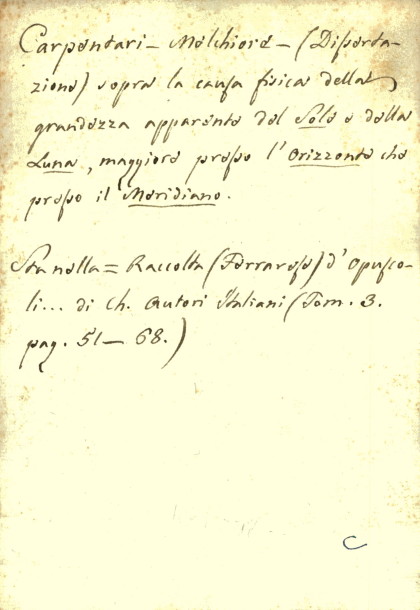 Carpentari - Melchiore - (Disserta-
zione) sopra la causa fisica della
grandezza apparente del Sole e della
Luna, maggiore presso l'Orizzonte che
presso il Meridiano.
Sta nella = Raccolta (Ferrarese) d'Opusco-
li... di Ch. Autori Italiani (Tom. 3.
pag. 51 - 68.)
C